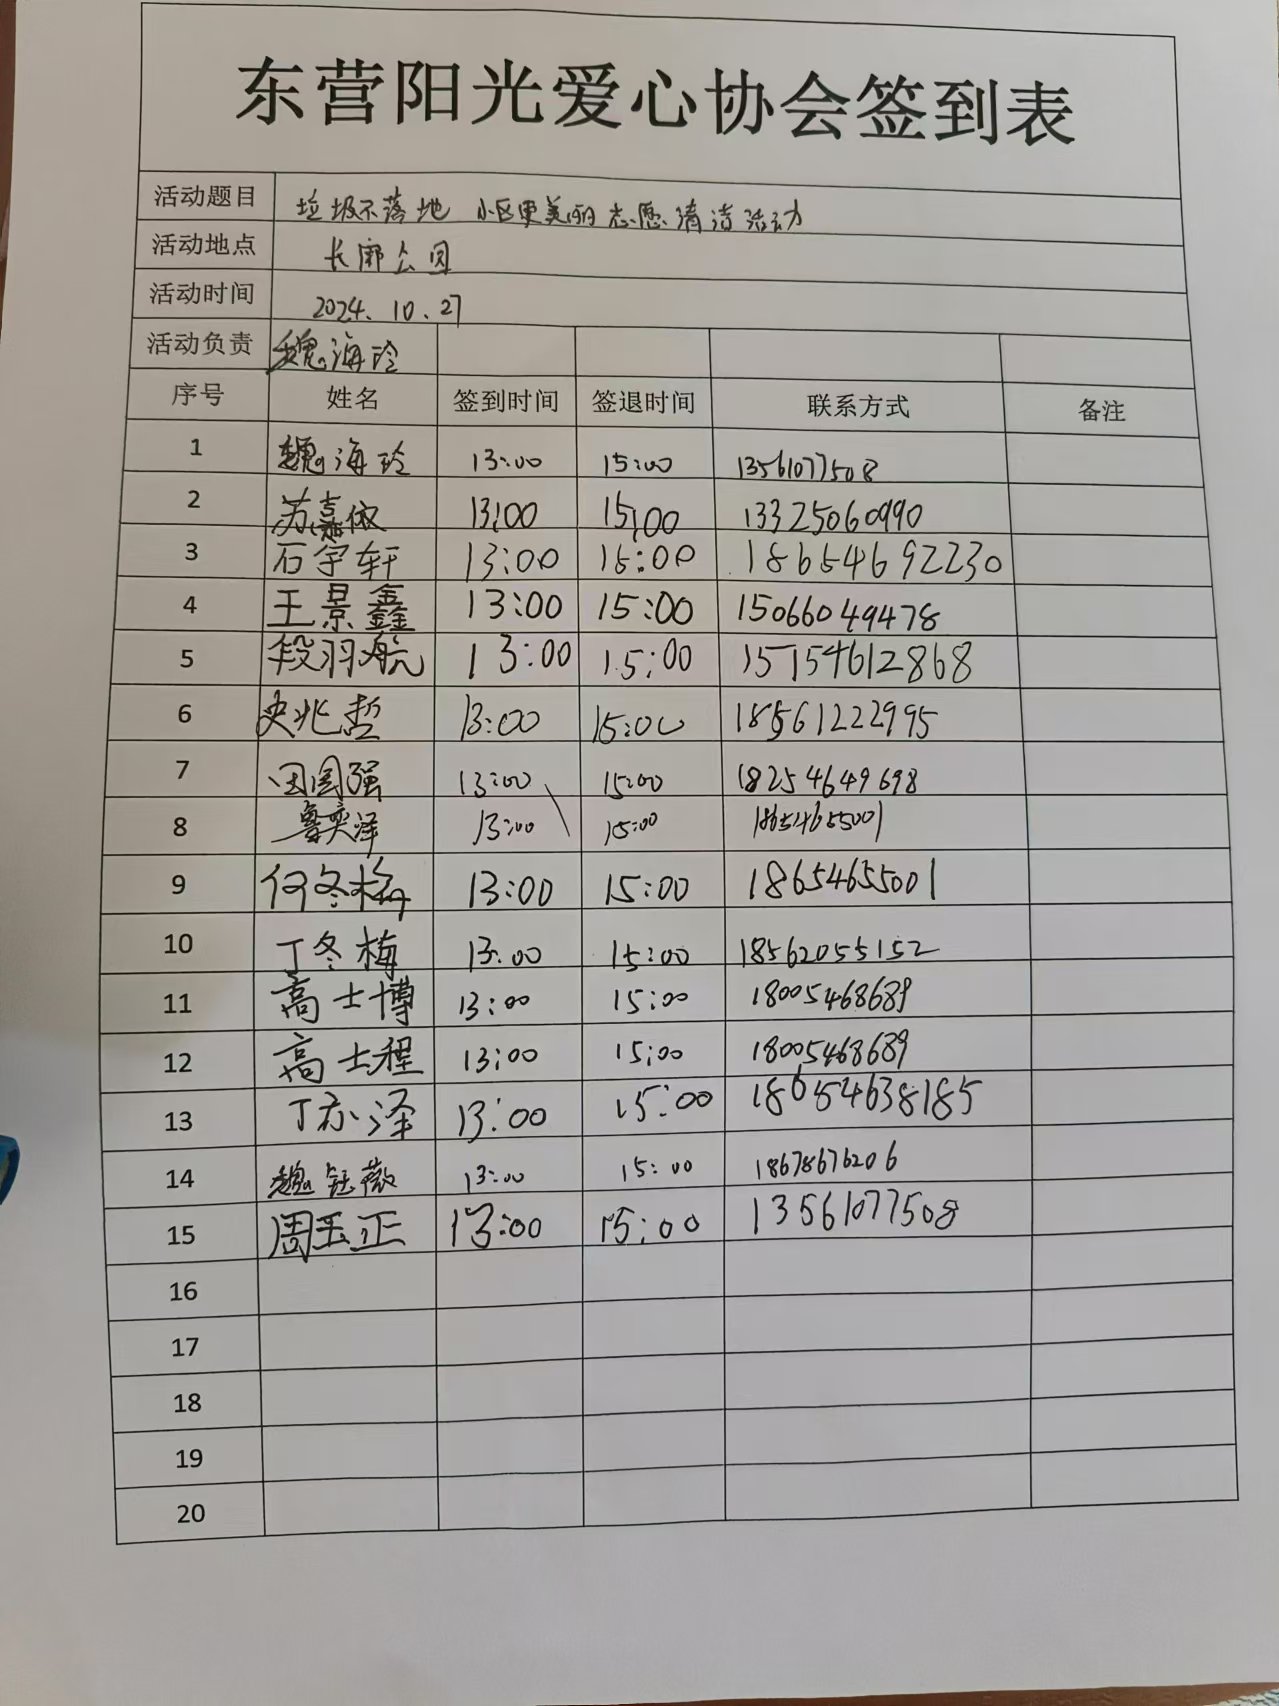 东营阳光爱心协会签到表
活动题目 垃圾不落地 小区更美丽志愿清洁活动
活动地点 长廊公园
活动时间 2024.10.27
活动负责 魏海玲
序号 姓名 签到时间 签退时间 联系方式 备注
1 魏海玲 13:00 15:00 13561077508
2 苏嘉依 13:00 15:00 13325060990
3 石宇轩 13:00 15:00 18654692230
4 王景鑫 13:00 15:00 15066049478
5 段羽航 13:00 15:00 15154612868
6 史兆哲 13:00 15:00 18561222995
7 田国强 13:00 15:00 18254649698
8 鲁奕泽 13:00 15:00 18654655001
9 何冬梅 13:00 15:00 18654655001
10 丁冬梅 13:00 15:00 18562055152
11 高士博 13:00 15:00 18005468689
12 高士程 13:00 15:00 18005468689
13 丁亦泽 13:00 15:00 18654638185
14 魏钰薇 13:00 15:00 18678676206
15 周玉正 13:00 15:00 13561077508
16
17
18
19
20